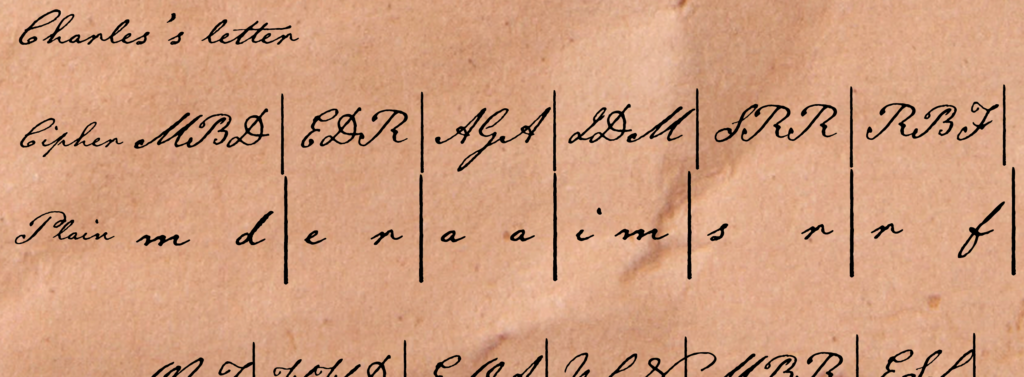 Charles's letter
Cipher MBD | EDR | AGA | IDM | SRR | RBF |
Plain m d | e r | a a | i m | s r | r f |